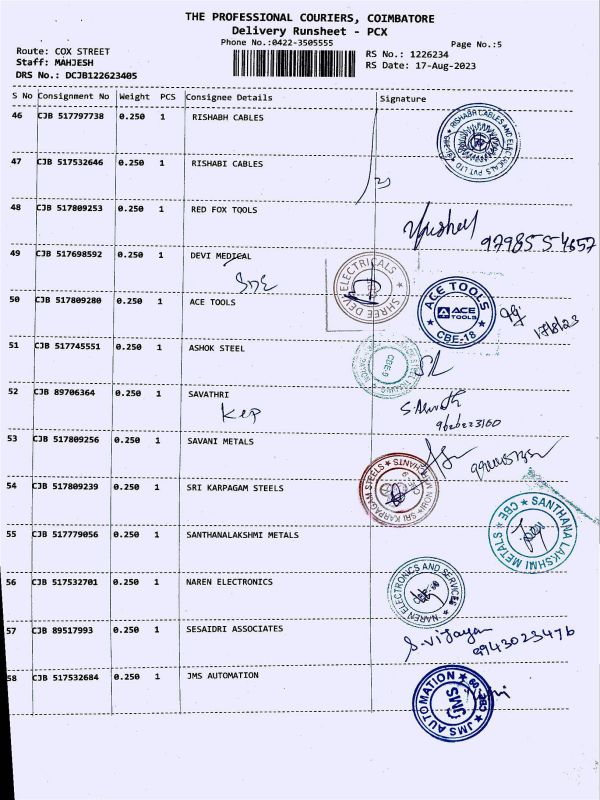 THE PROFESSIONAL COURIERS, COIMBATORE
Delivery Runsheet - PCX
Phone No.:0422-3505555
Page No.:5
Route: COX STREET
Staff: MAHJESH
DRS No.: DCJB122623405
RS No.: 1226234
RS Date: 17-Aug-2023
S No Consignment No Weight PCS Consignee Details Signature
46 CJB 517797738 0.250 1 RISHABH CABLES
RISHABH CABLES AND ELECTRICALS PVT LTD
47 CJB 517532646 0.250 1 RISHABI CABLES
48 CJB 517809253 0.250 1 RED FOX TOOLS
49 CJB 517698592 0.250 1 DEVI MEDICAL
SHREE DEVI ELECTRICALS
50 CJB 517809280 0.250 1 ACE TOOLS
ACE TOOLS
ACE TOOLS
CBE-18
17/8/23
51 CJB 517745551 0.250 1 ASHOK STEEL
CBE-9
52 CJB 89706364 0.250 1 SAVATHRI
53 CJB 517809256 0.250 1 SAVANI METALS
54 CJB 517809239 0.250 1 SRI KARPAGAM STEELS
SRI KARPAGAM STEELS
55 CJB 517779056 0.250 1 SANTHANALAKSHMI METALS
SANTHANA LAKSHMI METALS CBE
56 CJB 517532701 0.250 1 NAREN ELECTRONICS
NAREN ELECTRONICS AND SERVICES
57 CJB 89517993 0.250 1 SESAIDRI ASSOCIATES
S. Vijayan
8943023476
58 CJB 517532684 0.250 1 JMS AUTOMATION
JMS AUTOMATION
JMS